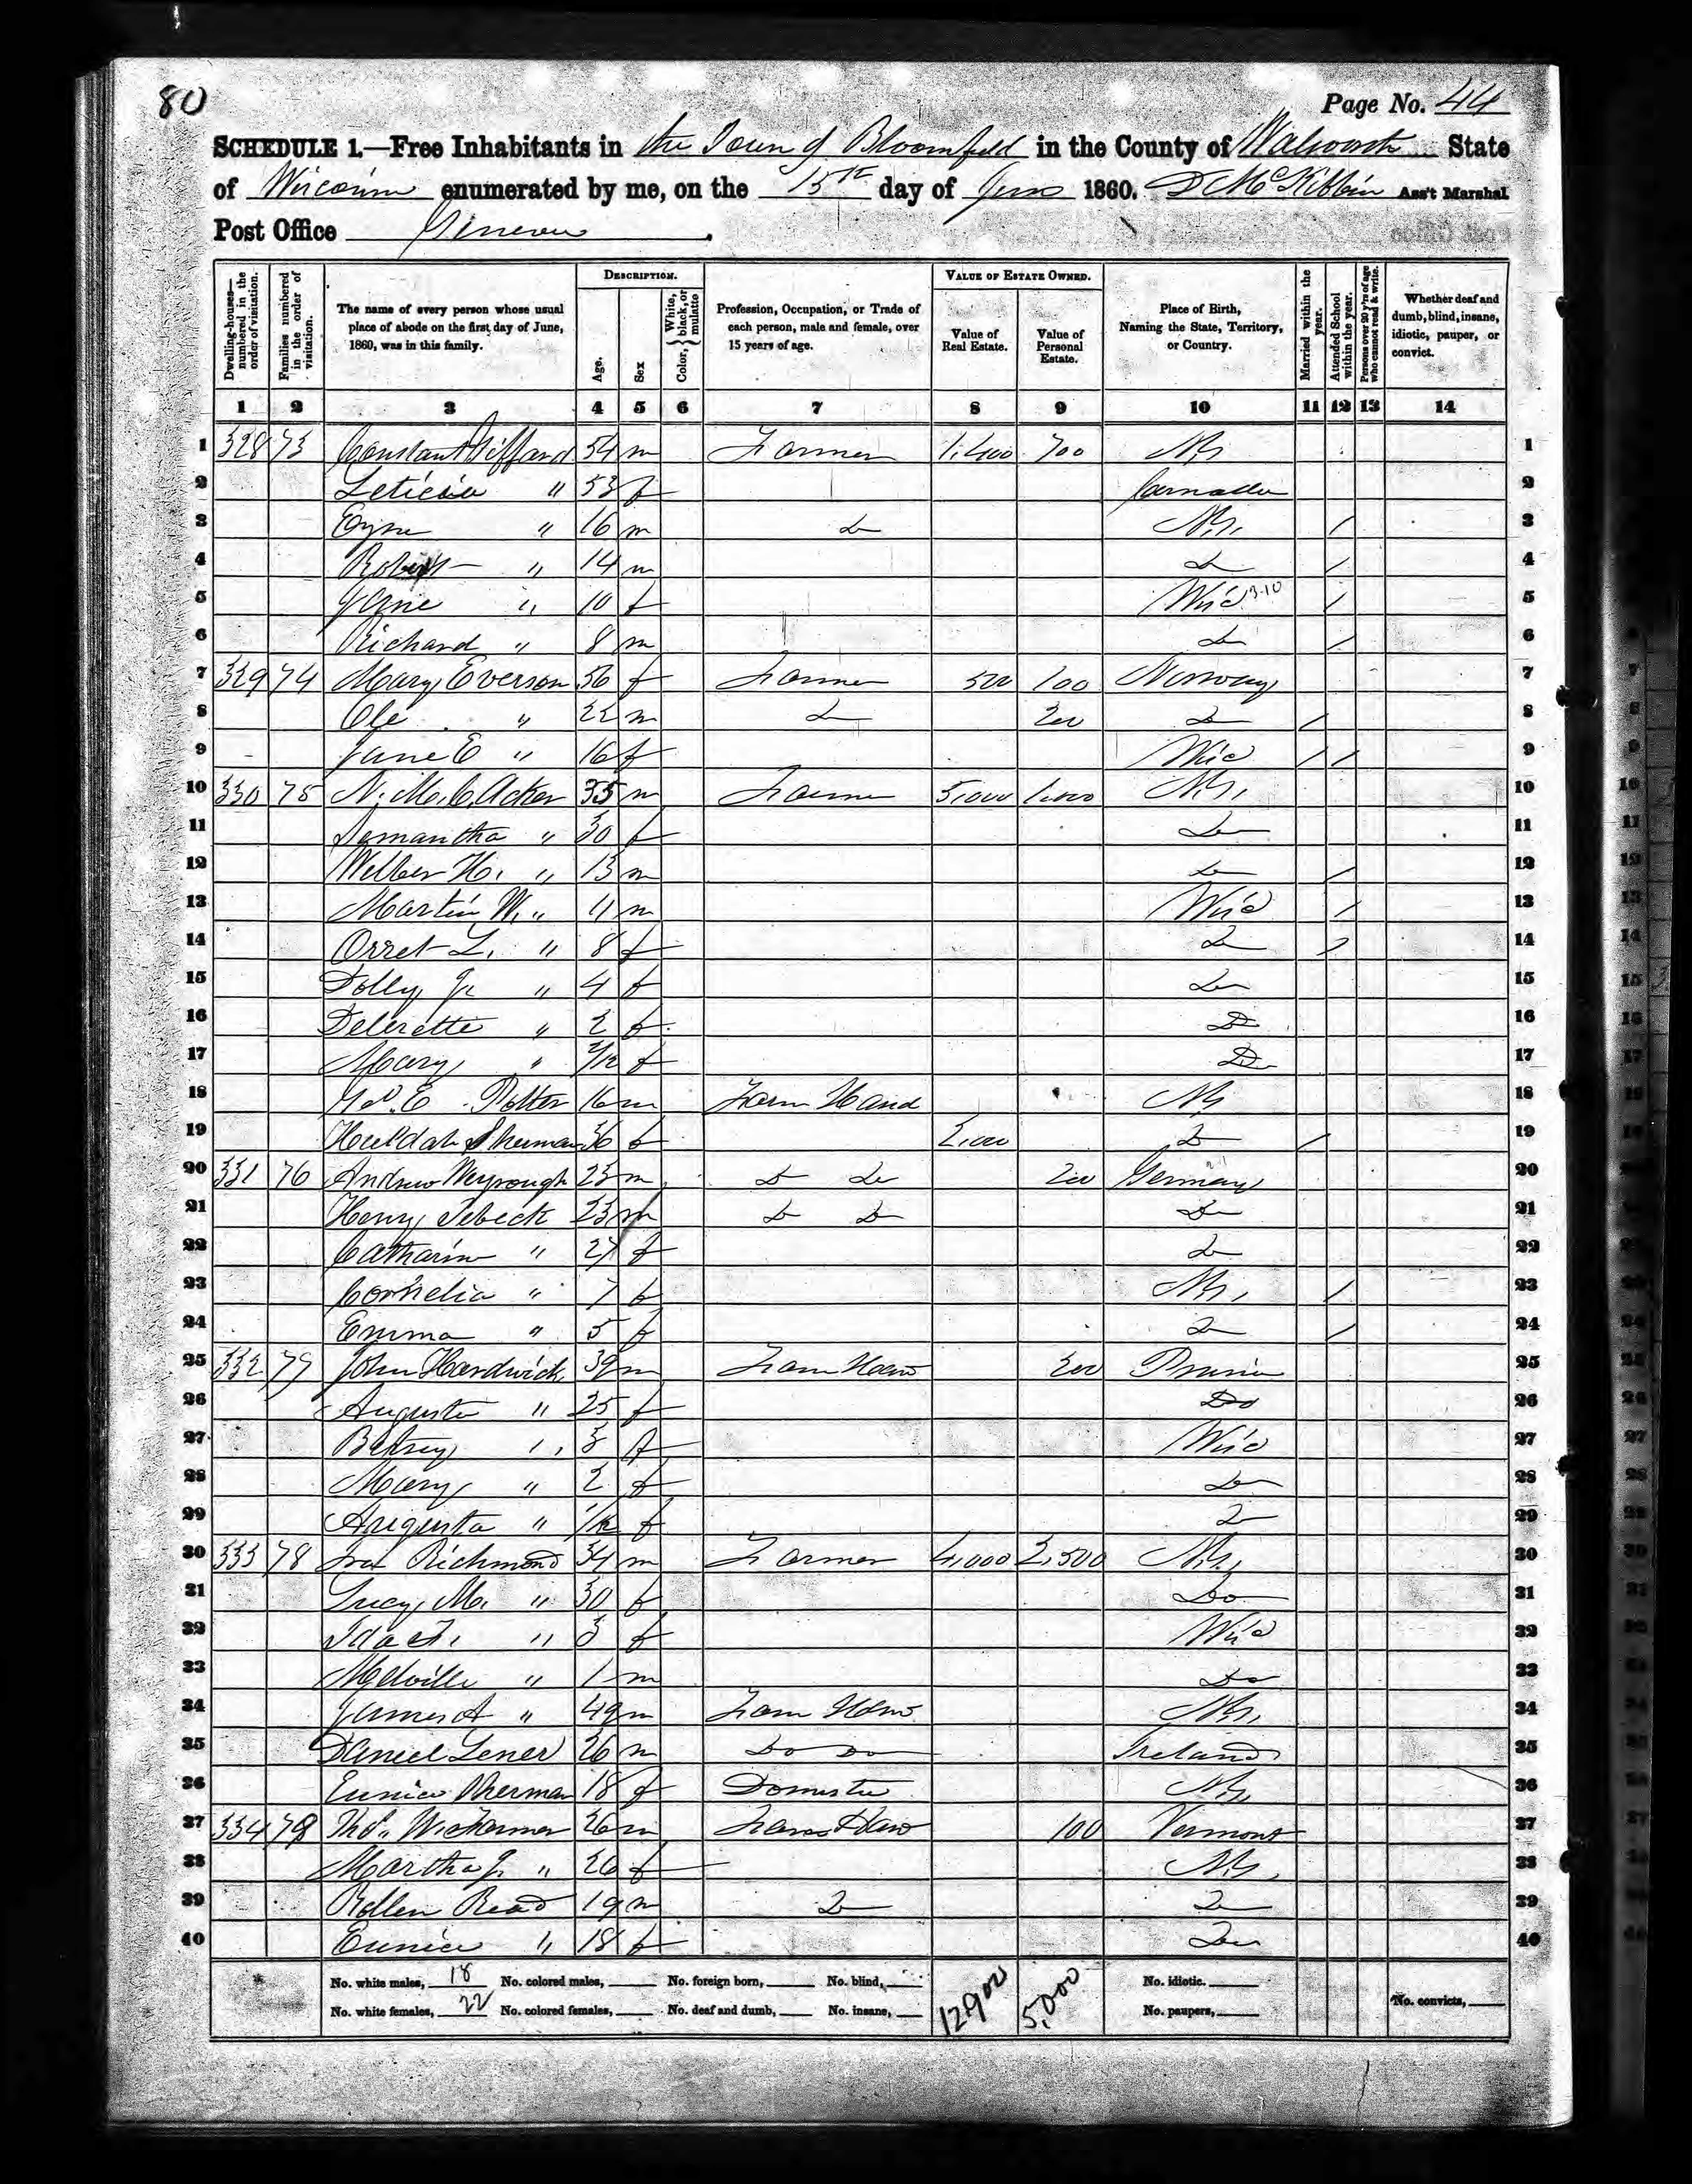 80
Page No. 44
SCHEDULE 1.—Free Inhabitants in the Town of Bloomfield in the County of Walworth State
of Wisconsin enumerated by me, on the 15th day of June 1860. D McKibbin Ass't Marshal
Post Office Geneva
DESCRIPTION. VALUE OF ESTATE OWNED.
Dwelling-houses—numbered in the order of visitation. Families numbered in the order of visitation. The name of every person whose usual place of abode on the first day of June, 1860, was in this family. Age. Sex Color, { White, black, or mulatto Profession, Occupation, or Trade of each person, male and female, over 15 years of age. Value of Real Estate. Value of Personal Estate. Place of Birth, Naming the State, Territory, or Country. Married within the year. Attended School within the year. Persons over 20 y'rs of age who cannot read & write. Whether deaf and dumb, blind, insane, idiotic, pauper, or convict.
1 2 3 4 5 6 7 8 9 10 11 12 13 14
1 328 73 Constant Giffard 54 m Farmer 1,400 700 NY 1
2 Leticia " 53 f 2
3 " 16 m Do NY, / 3
4 Robert " 14 m Do / 4
5 Jane " 10 f Wis 3-10 / 5
6 Richard " 8 m Do / 6
7 329 74 Mary Everson 56 f Farmer 500 100 Norway 7
8 Ole " 22 m Do 200 Do / 8
9 Jane E " 16 f Wis / / 9
10 330 75 N. Mc. C. Acker 35 m Farmer 5,000 1,000 NY, 10
11 Semantha " 30 f Do 11
12 Wilber H. " 13 m Do / 12
13 Martin W. " 11 m Wis / 13
14 Orret L. " 8 f Do / 14
15 Dolly J. " 4 f Do 15
16 " 2 f Do 16
17 Mary " f Do 17
18 E. Potter 16 m Farm Hand NY 18
19 Huldah Sherman 36 f 2,000 Do / 19
20 331 76 Andrew 23 m Do Do 200 Germany 20
21 Henry Sebeck 23 m Do Do Do 21
22 Catharine " 27 f Do 22
23 Cornelia " 7 f NY, / 23
24 Emma " 5 f Do / 24
25 332 77 John Hardwick 39 m Farm Hand 300 Prussia 25
26 Augusta " 25 f Do 26
27 Betsey " 3 f Wis 27
28 Mary " 2 f Do 28
29 Augusta " 1/12 f Do 29
30 333 78 Ira Richmond 34 m Farmer 4,000 2,500 NY, 30
31 Lucy M. " 30 f Do 31
32 Ida " 3 f Wis 32
33 Melville " 1 m Do 33
34 James A " 49 m Farm Hand NY, 34
35 Daniel Lener 26 m Do Do Ireland 35
36 Eunice Sherman 18 f Domestic NY, 36
37 334 79 Thos. 26 m Farm Hand 100 Vermont 37
38 Martha J. " 26 f NY, 38
39 Rollen Read 19 m Do Do 39
40 Eunice " 18 f Do 40
No. white males, 18 No. colored males, No. foreign born, No. blind, No. idiotic.
No. white females, 22 No. colored females, No. deaf and dumb, No. insane, 12900 5,000 No. paupers, No. convicts,